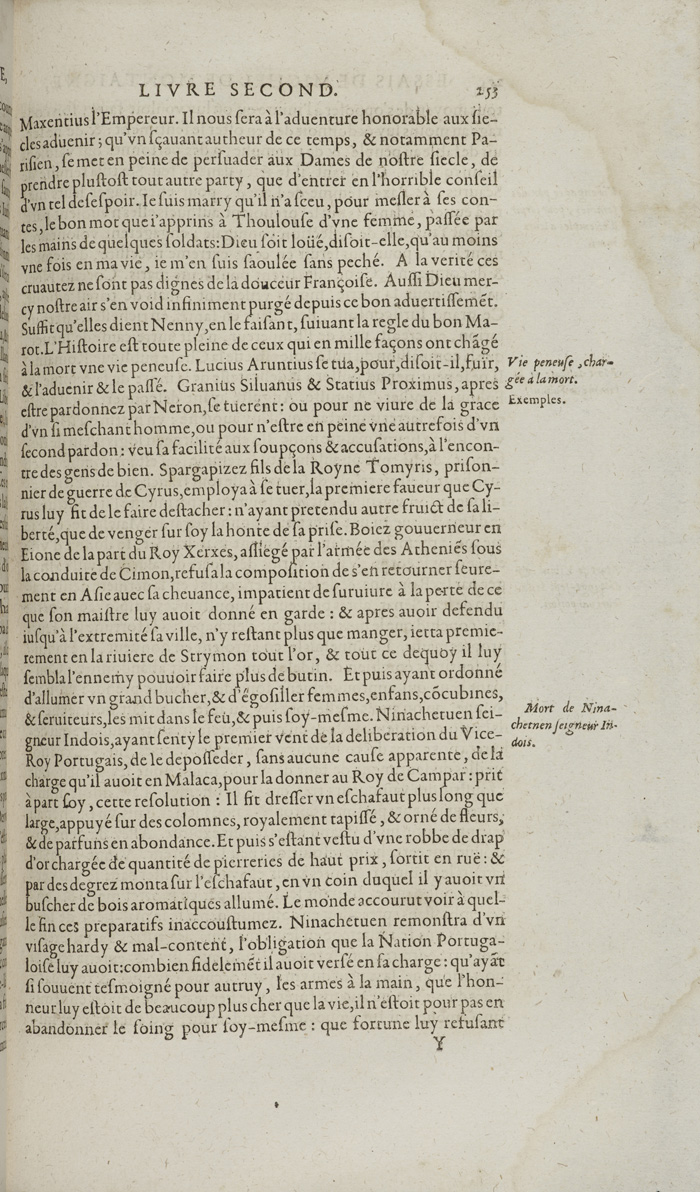 LIVRE SECOND. 253
Maxentius l'Empereur. Il nous ſera à l'aduenture honorable aux ſie-
cles aduenir; qu'vn ſçauant autheur de ce temps, & notamment Pa-
riſien, ſe met en peine de perſuader aux Dames de noſtre ſiecle, de
prendre pluſtoſt tout autre party, que d'entrer en l'horrible conſeil
d'vn tel deſeſpoir. Ie ſuis marry qu'il n'a ſceu, pour meſler à ſes con-
tes, le bon mot que i'apprins à Thoulouſe d'vne femme, paſſée par
les mains de quelques ſoldats: Dieu ſoit loüé, diſoit-elle, qu'au moins
vne fois en ma vie, ie m'en ſuis ſaoulée ſans peché. A la verité ces
cruautez ne ſont pas dignes de la douceur Françoiſe. Auſſi Dieu mer-
cy noſtre air s'en void infiniment purgé depuis ce bon aduertiſſemẽt.
Suffit qu'elles dient Nenny, en le faiſant, ſuiuant la regle du bon Ma-
rot. L'Hiſtoire eſt toute pleine de ceux qui en mille façons ont chãgé
à la mort vne vie peneuſe. Lucius Aruntius ſe tua, pour, diſoit-il, fuir,
Vie peneuſe, char-
& l'aduenir & le paſſé. Granius Siluanus & Statius Proximus, apres
gée à la mort.
eſtre pardonnez par Neron, ſe tuerent: ou pour ne viure de la grace
Exemples.
d'vn ſi meſchant homme, ou pour n'eſtre en peine vne autrefois d'vn
ſecond pardon: veu ſa facilité aux ſoupçons & accuſations, à l'encon-
tre des gens de bien. Spargapizez fils de la Royne Tomyris, priſon-
nier de guerre de Cyrus, employa à ſe tuer, la premiere faueur que Cy-
rus luy fit de le faire deſtacher: n'ayant pretendu autre fruict de ſa li-
berté, que de venger ſur ſoy la honte de ſa priſe. Boiez gouuerneur en
Eione de la part du Roy Xerxes, aſſiegé par l'armée des Atheniẽs ſous
la conduite de Cimon, refuſa la compoſition de s'en retourner ſeure-
ment en Aſie auec ſa cheuance, impatient de ſuruiure à la perte de ce
que ſon maiſtre luy auoit donné en garde: & apres auoir defendu
iuſqu'à l'extremité ſa ville, n'y reſtant plus que manger, ietta premie-
rement en la riuiere de Strymon tout l'or, & tout ce dequoy il luy
ſembla l'ennemy pouuoir faire plus de butin. Et puis ayant ordonné
d'allumer vn grand bucher, & d'égoſiller femmes, enfans, cõcubines,
& ſeruiteurs, les mit dans le feu, & puis ſoy-meſme. Ninachetuen ſei-
Mort de Nina-
gneur Indois, ayant ſenty le premier vent de la deliberation du Vice-
chetnen ſeigneur In-
Roy Portugais, de le depoſſeder, ſans aucune cauſe apparente, de la
dois.
charge qu'il auoit en Malaca, pour la donner au Roy de Campar: prit
à part ſoy, cette reſolution: Il fit dreſſer vn eſchafaut plus long que
large, appuyé ſur des colomnes, royalement tapiſſé, & orné de fleurs,
& de parfuns en abondance. Et puis s'eſtant veſtu d'vne robbe de drap
d'or chargée de quantité de pierreries de haut prix, ſortit en ruë: &
par des degrez monta ſur l'eſchafaut, en vn coin duquel il y auoit vn
buſcher de bois aromatiques allumé. Le monde accourut voir à quel-
le fin ces preparatifs inaccouſtumez. Ninachetuen remonſtra d'vn
viſage hardy & mal-content, l'obligation que la Nation Portuga-
loiſe luy auoit: combien fidelemẽt il auoit verſé en ſa charge: qu'ayãt
ſi ſouuent teſmoigné pour autruy, les armes à la main, que l'hon-
neur luy eſtoit de beaucoup plus cher que la vie, il n'eſtoit pour pas en
abandonner le ſoing pour ſoy-meſme: que fortune luy refuſant
Y